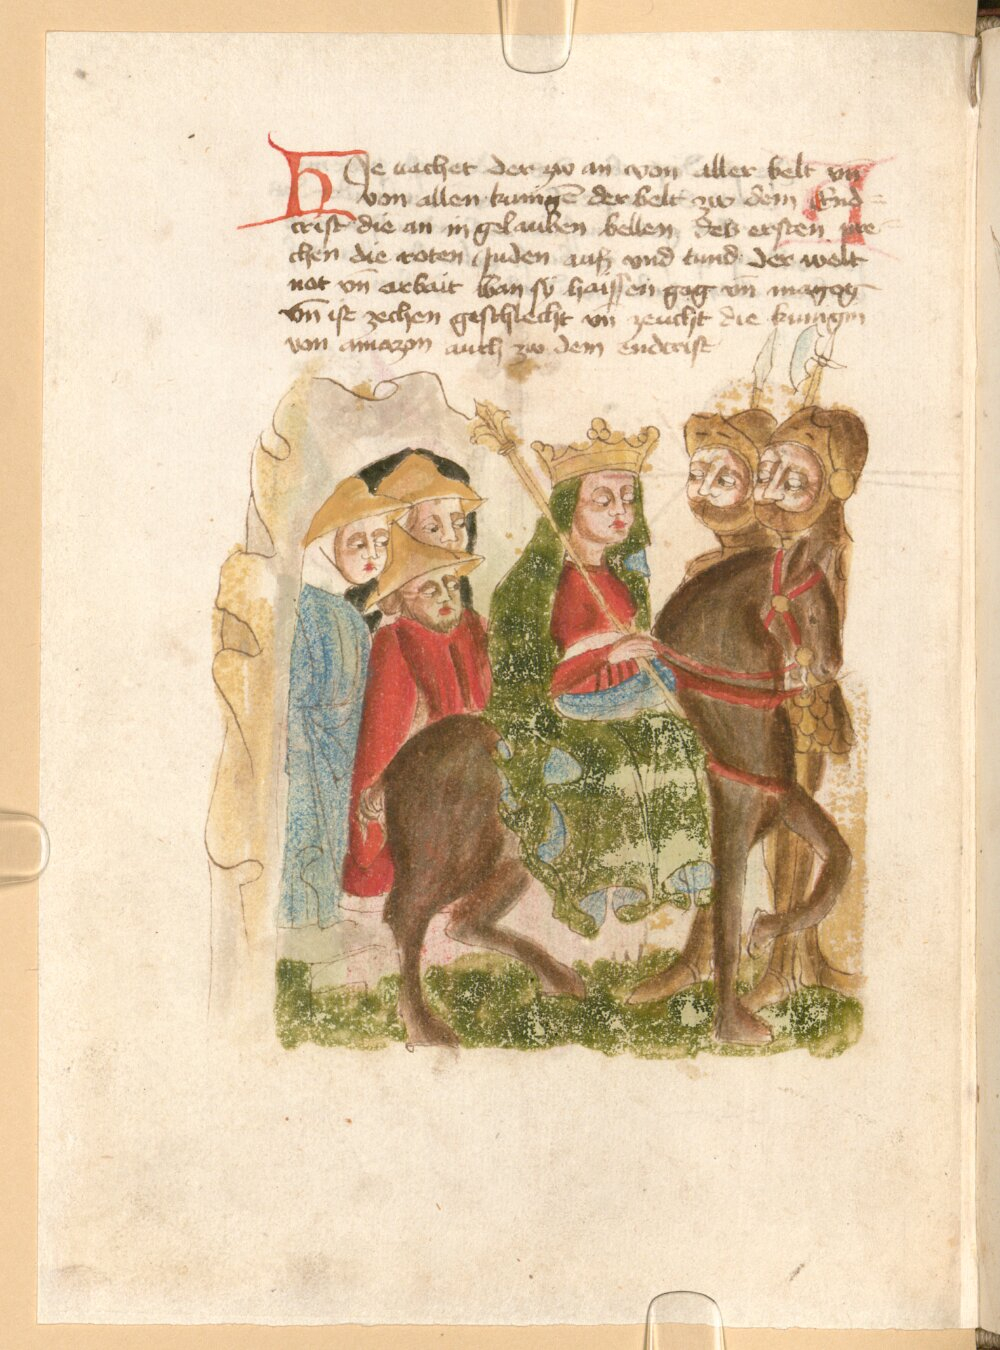 Hie vachet der zw an von aller belt vn̄
von allen kunigē der belt zw dem End
crist die an in gelauben bellen des ersten pre
chen die roten Juden auß vnd tund der welt
not vn̄ arbait wan sy haissen gog vn̄ magog
vn̄ ist zechen geschlecht vn̄ zeucht die kunigin
von amazon auch zw dem endcrist